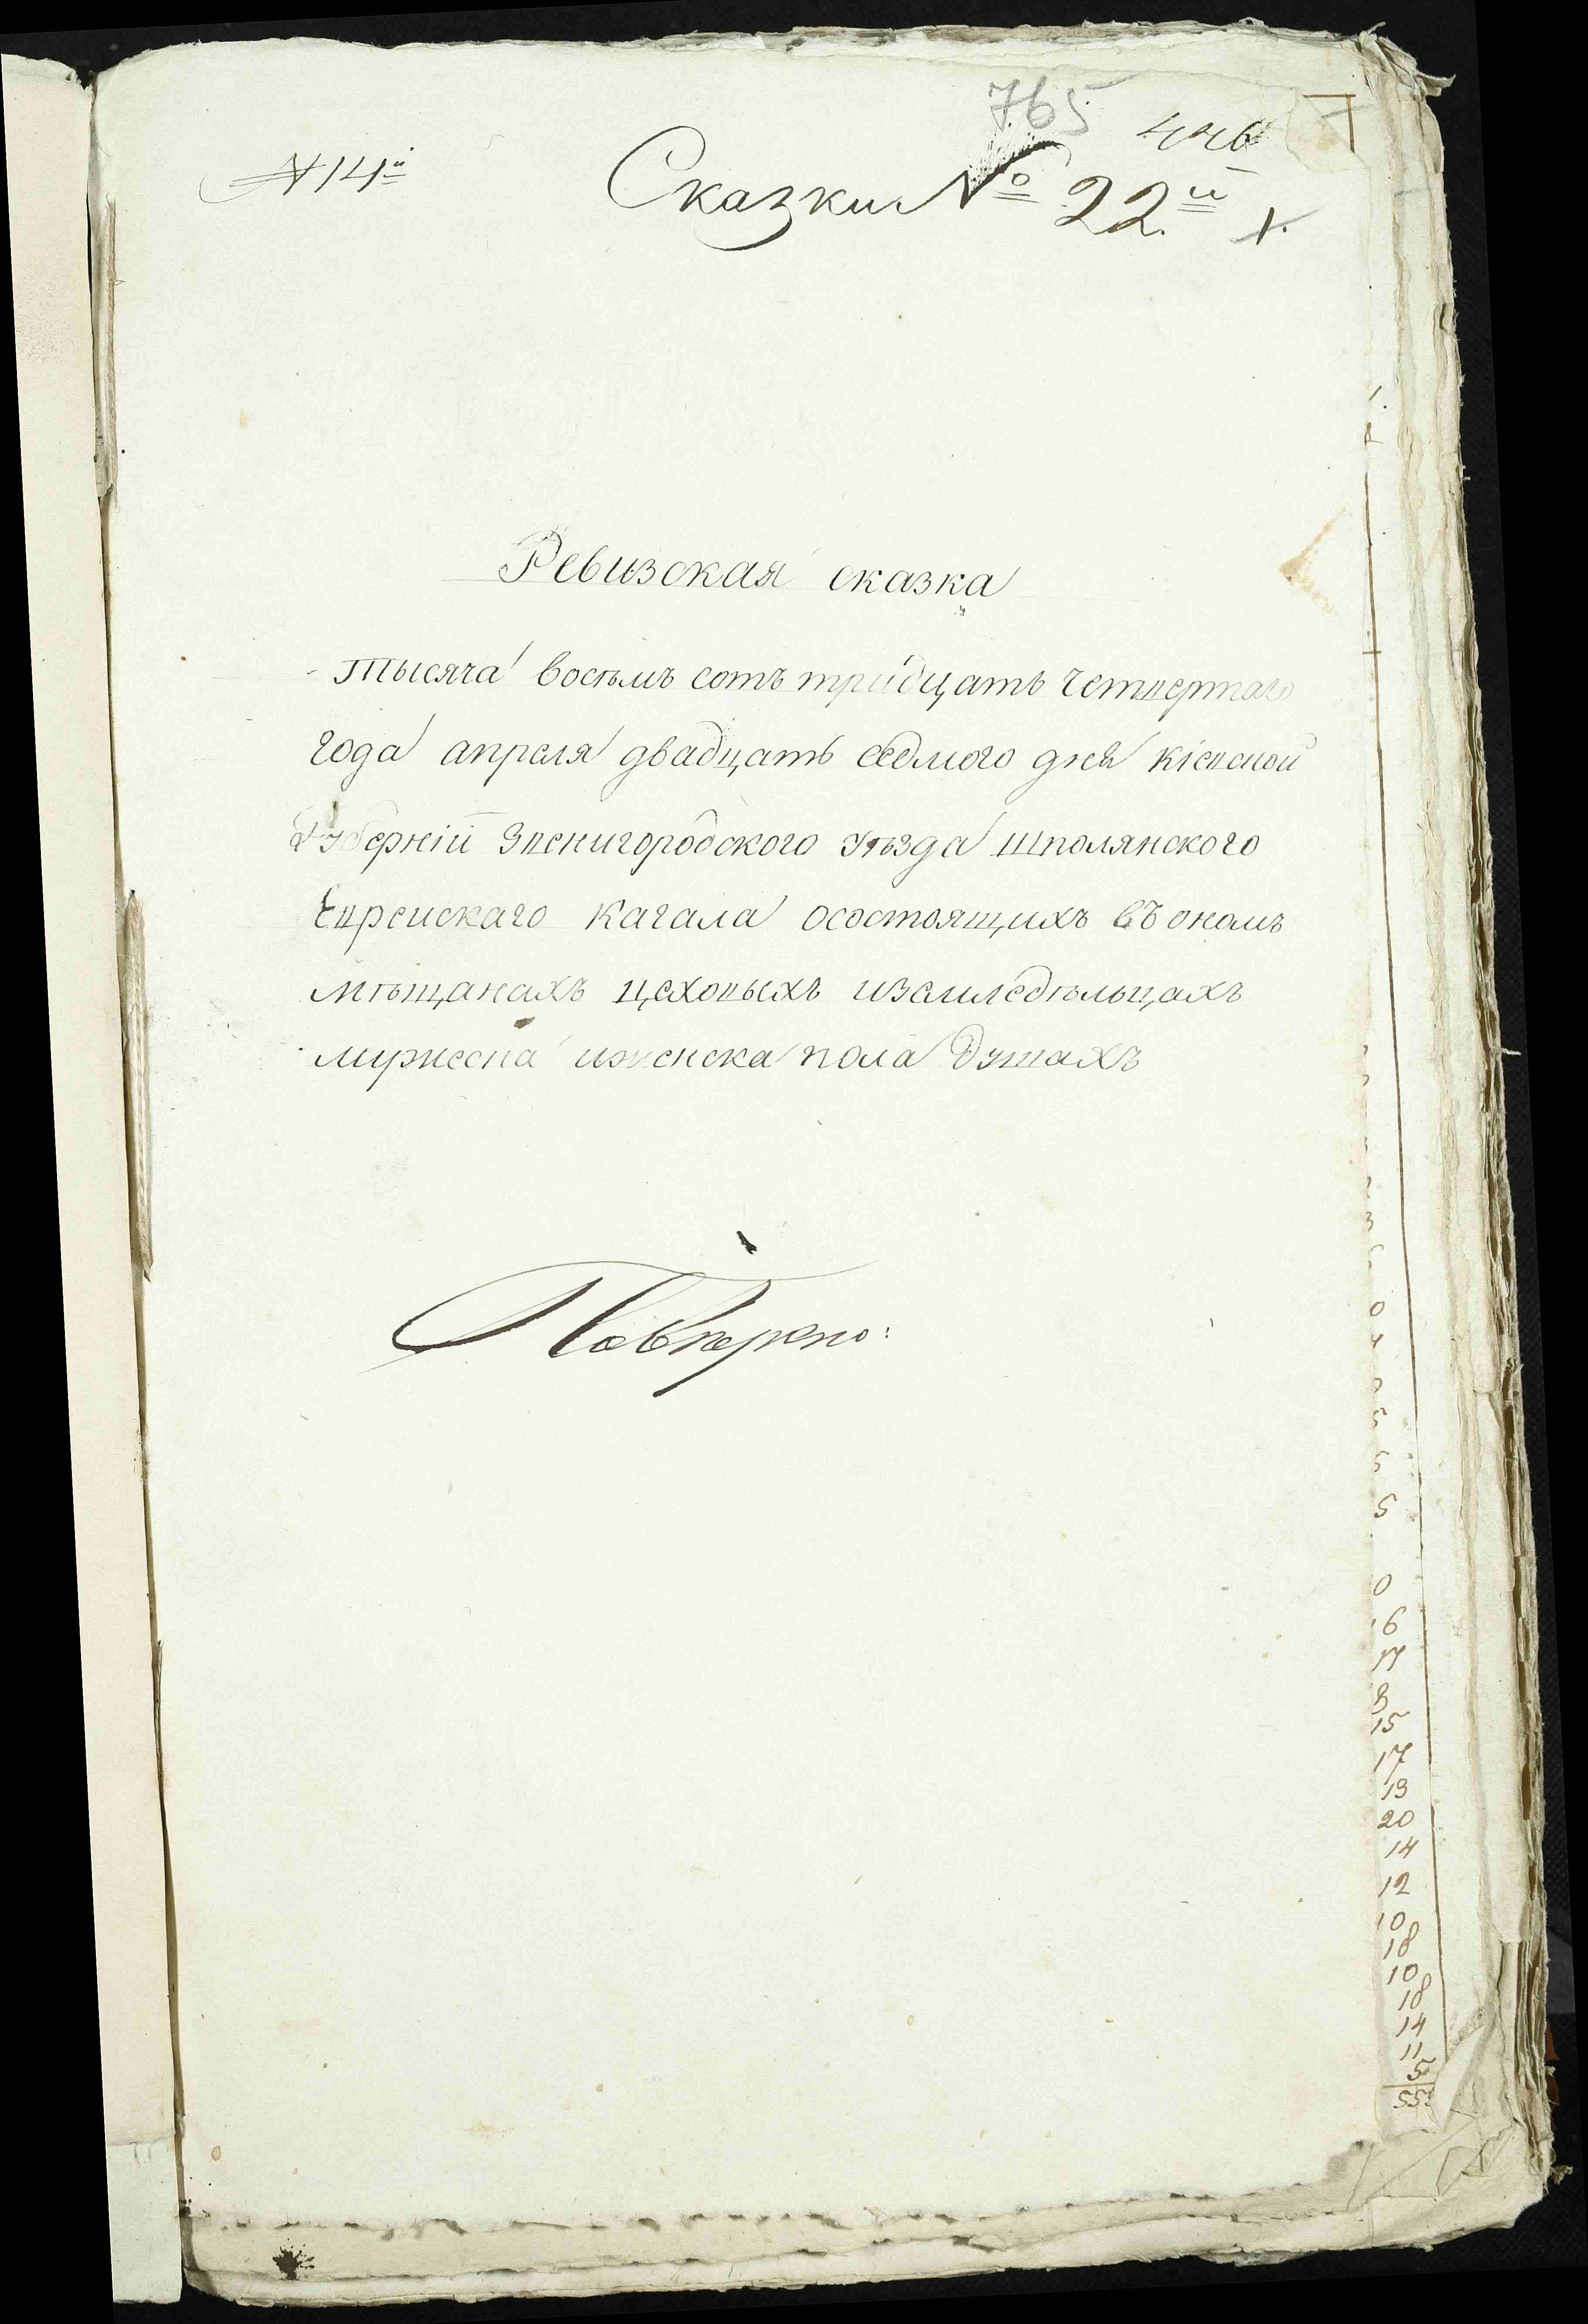 765
446
№ 14й
Сказки № 22й
Ревизская сказка
Тысяча восѣмъ сотъ тридцать четвертаго
года апреля двадцать седмого дня Кіевской
Губерніи Звенигородского уѣзда Шполянского
Еврейскаго Кагала осостоящихъ въ ономъ
мѣщанахъ цеховыхъ изсмледѣльцахъ
мужеска иженска пола душахъ
Повѣрено:
0
16
17
15
17
13
20
14
12
10
18
10
18
14
11
5